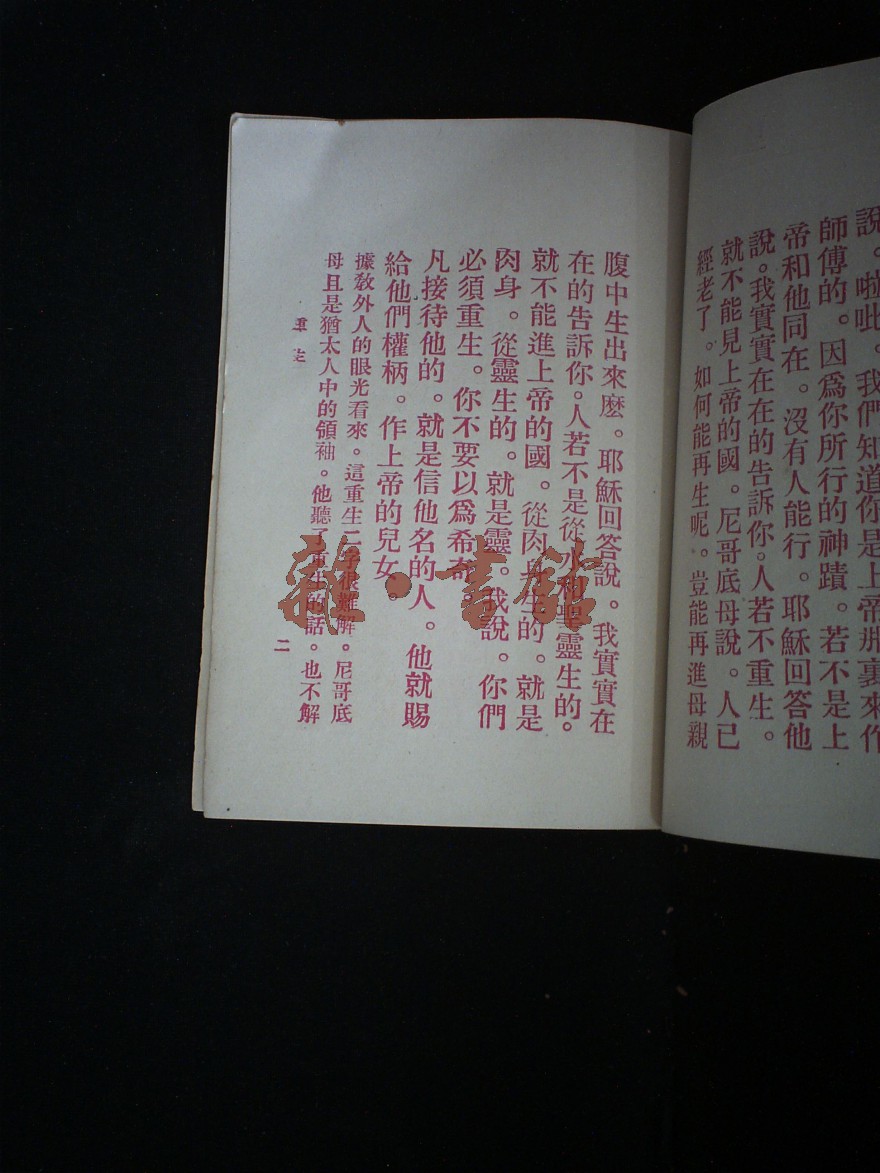 說。啦吡。我們知道你是上帝那裏來作
師傅的。因爲你所行的神蹟。若不是上
帝和他同在。沒有人能行。耶穌回答他
說。我實實在在的告訴你。人若不重生。
就不能見上帝的國。尼哥底母說。人已
經老了。如何能再生呢。豈能再進母親
腹中生出來麽。耶穌回答說。我實實在
在的告訴你。人若不是從水和聖靈生的。
就不能進上帝的國。從肉身生的。就是
肉身。從靈生的。就是靈。我說。你們
必須重生。你不要以爲希奇
凡接待他的。就是信他名的人。他就賜
給他們權柄。作上帝的兒女
據敎外人的眼光看來。這重生二字很難解。尼哥底
母且是猶太人中的領袖。他聽了重生的話。也不解
重生
二
雜·書館